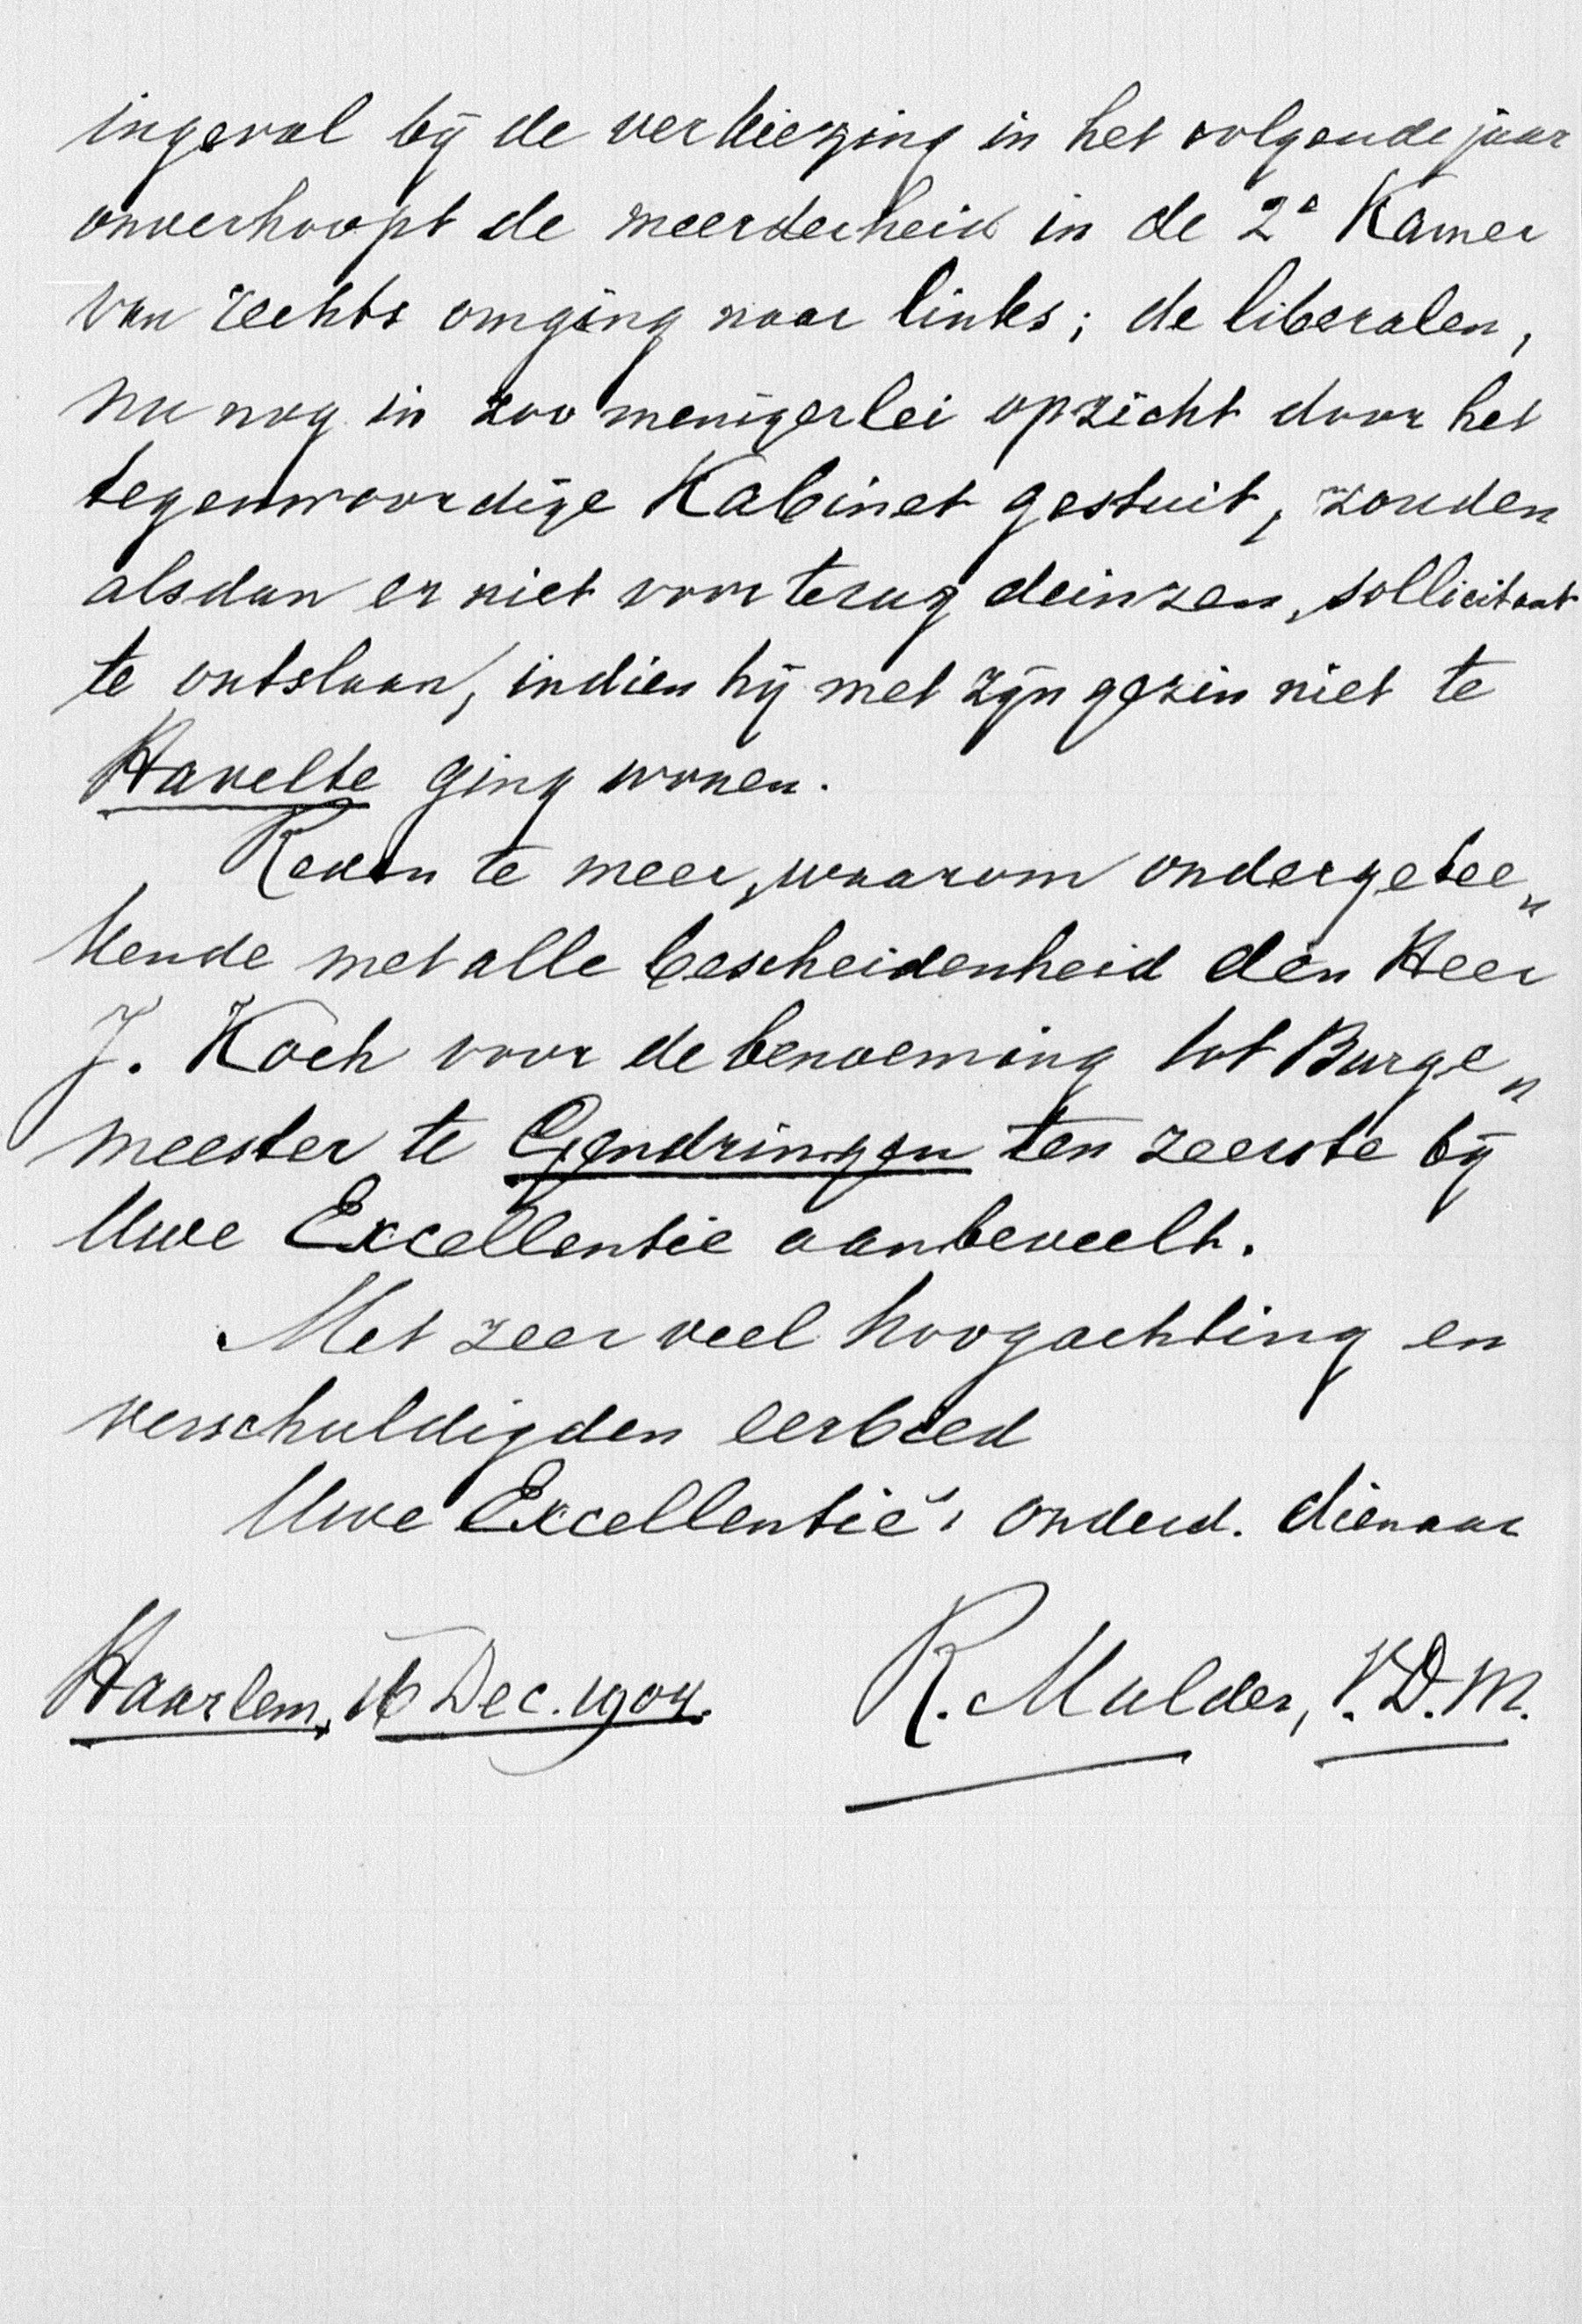 ingeval bij de verkiezing in het volgende jaar
onverhoopt de meerderheid in de 2e Kamer
van rechts omging naar links; de liberalen,
nu nog in zoo menigerlei opzicht door het
tegenwoordige Kabinet gestuit, zouden
alsdan er niet voor terug deinzen, sollicitant
te ontslaan, indien hij met zijn gezin niet te
Havelte ging wonen.
Reden te meer, waarom ondergetee„
kende met alle bescheidenheid den Heer
J. Koch voor de benoeming tot Burge„
meester te Gendringen ten zeerste bij
Uwe Excellentie aanbeveelt.
Met zeer veel hoogachting en
verschuldigden eerbied
Uwe Excellentie's onderd. dienaar
Haarlem, 16 Dec. 1904. R. Mulder, V.D.M.